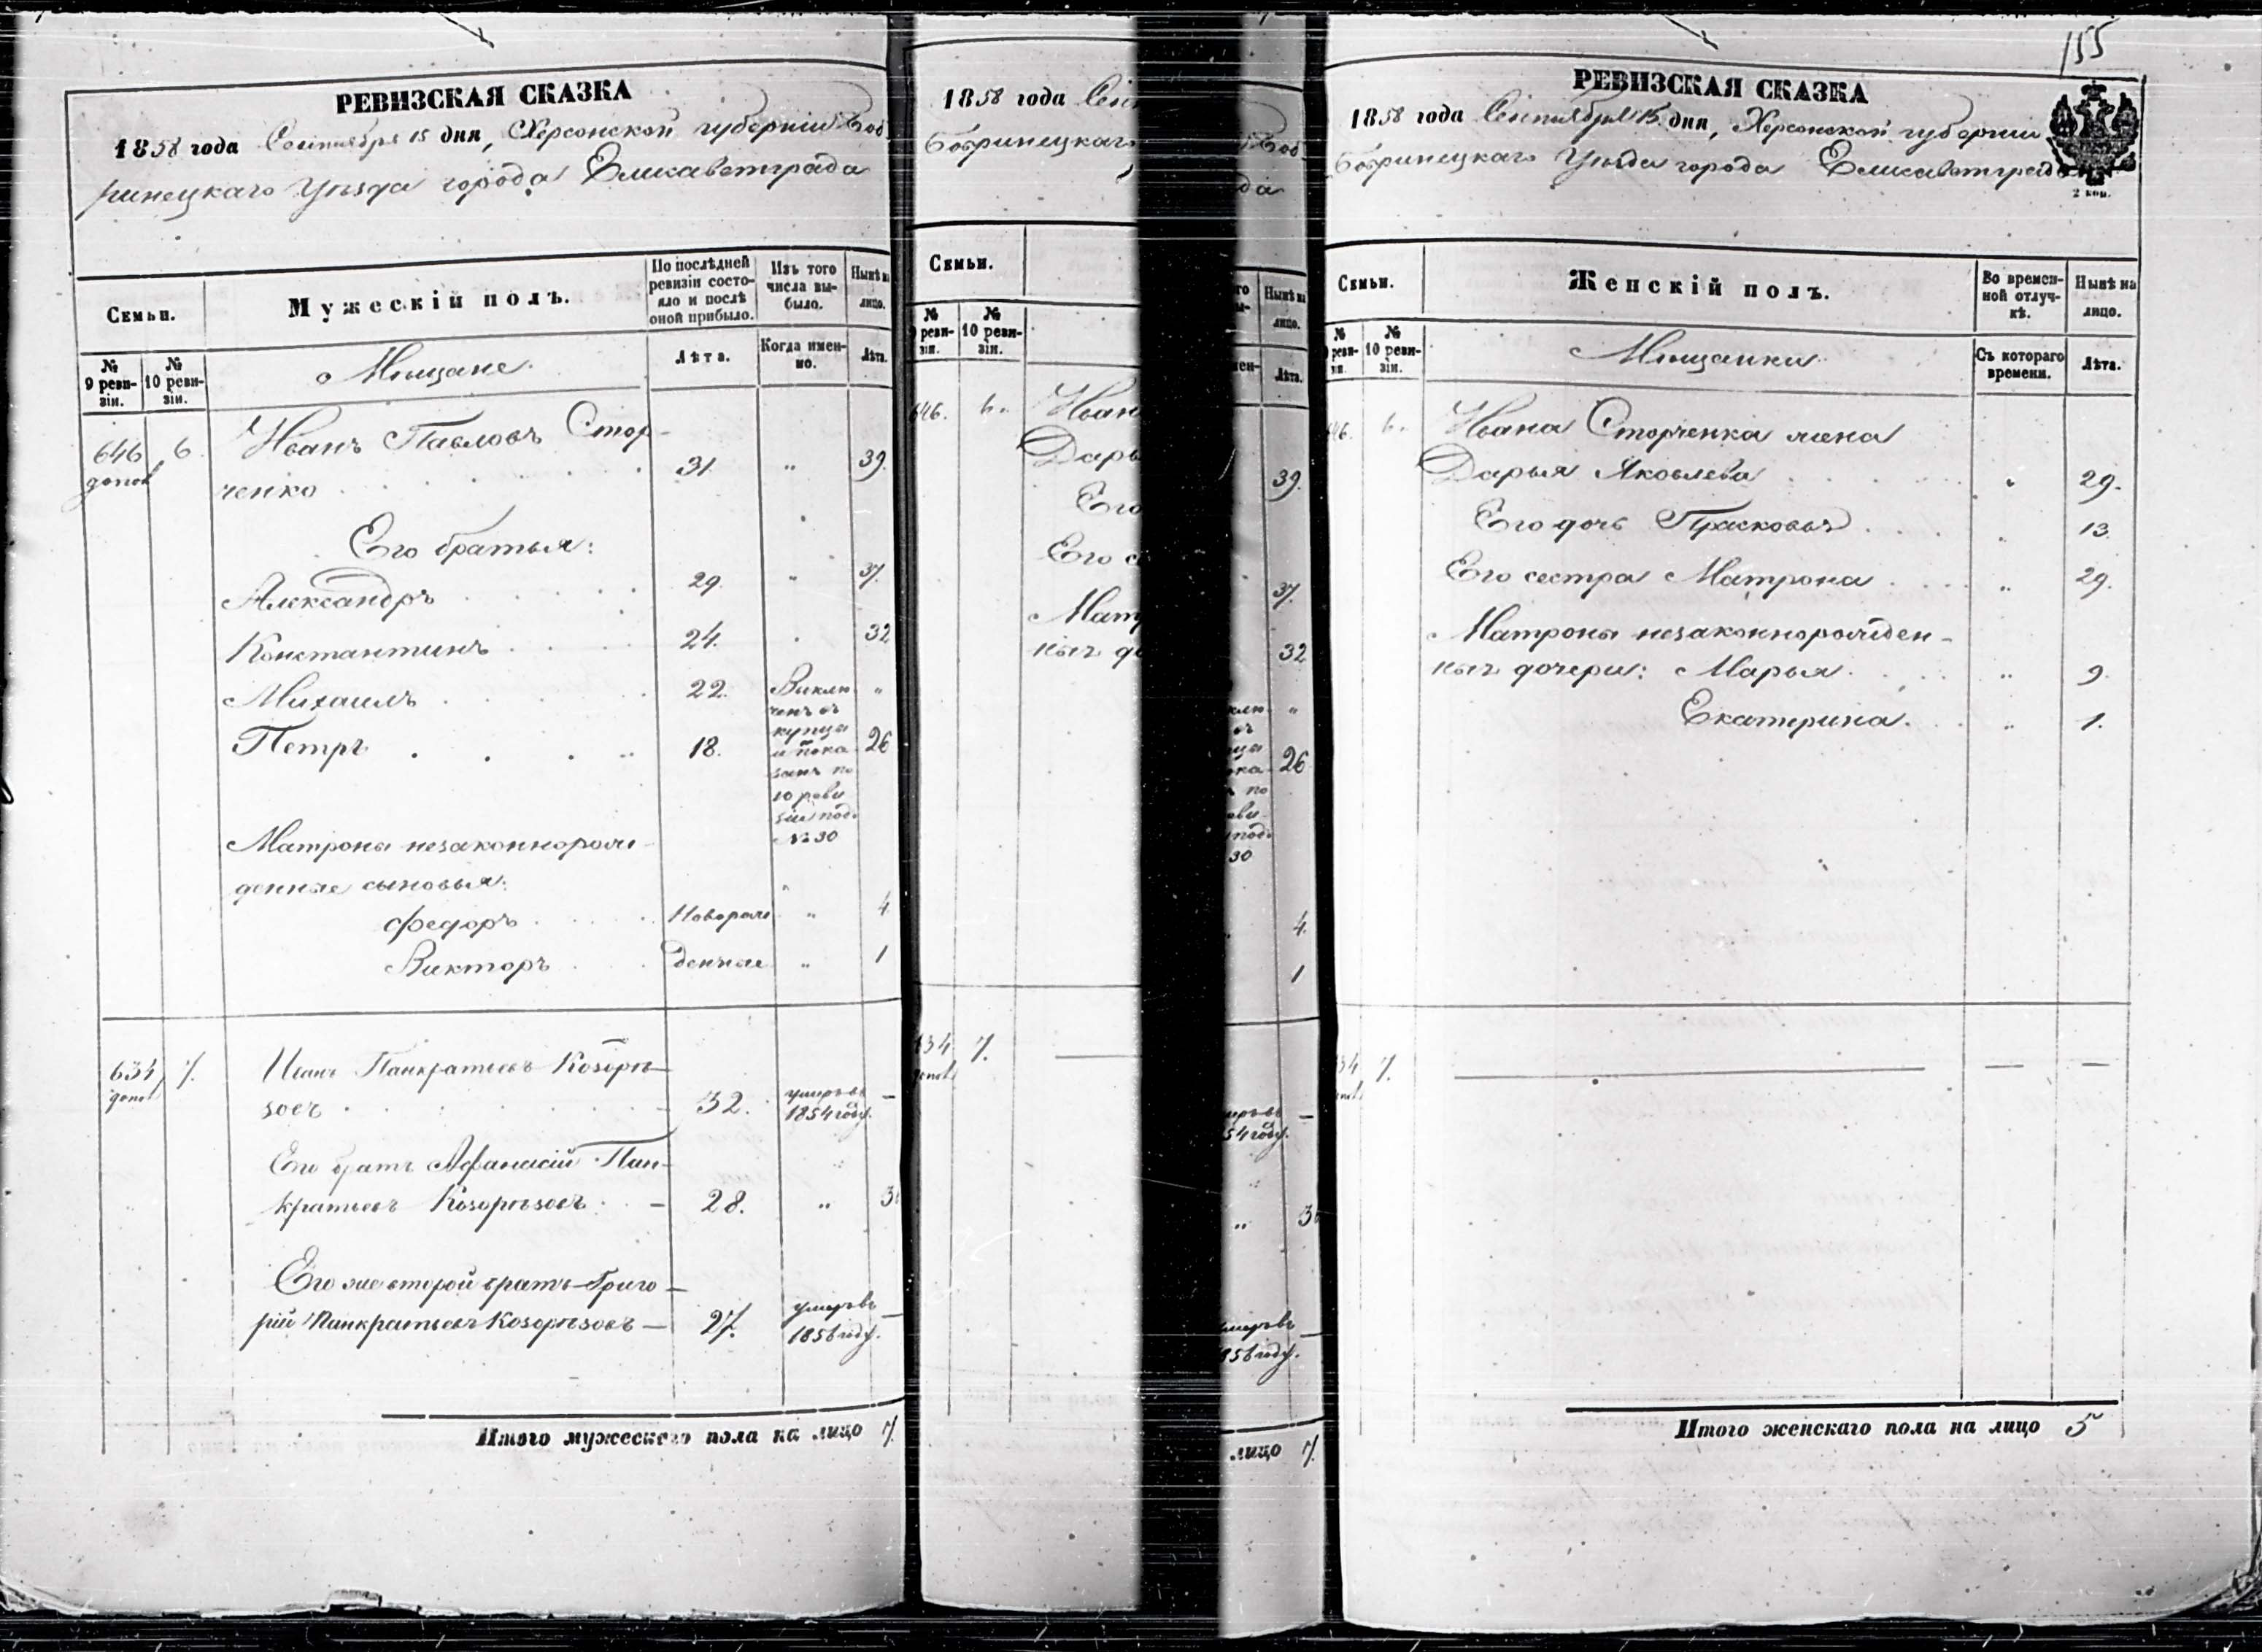 РЕВИЗСКАЯ СКАЗКА
1858 года Сентября 15 дня, Херсонской губерніи Боб-
ринецкаго Уѣзда города Елисаветграда
Семьи.
Мужескій полъ.
По послѣдней ревизіи состояло и послѣ оной прибыло.
Изъ того числа выбыло.
Нынѣ на лицо.
№ 9 ревизіи.
№ 10 ревизіи.
Мещане.
Лѣта.
Когда именно.
Лѣта.
646 6. Иванъ Павловъ Стор-
ченко 31. " 39.
Его братья:
Александръ 29. " 37.
Константинъ 24. 32
Михаилъ 22. Виклю- "
ченъ въ
купца
Петръ 18. и пока- 26
занъ по
10 реви
зіи под
№ 30
Матроны незаконнорож-
денные сыновья:
Федоръ Новорож " 4
Викторъ денные " 1
634 7. Иванъ Панкратьевъ Козорѣ-
зовъ 32. умеръ въ 1854 году. —
Его братъ Афанасій Пан-
кратьевъ Козорѣзовъ — 28. "
Его же второй братъ Григо-
рій Панкратьевъ Козорѣзовъ — 27. умеръ въ 1856 году. —
Итого мужескаго пола на лицо 7.
1858 года
Бобринецкаго
Семьи.
№ 10 ревизіи.
646. 6.
Иван
Дарь
Его
Его с
Мат
ных до
7.
Нынѣ на лицо.
Лѣта.
39.
37.
32
26
30
4.
1
лицо 7.
155
РЕВИЗСКАЯ СКАЗКА
1858 года Сентября 15 дня, Херсонской губерніи
Бобринецкаго Уѣзда города Елисаветграда
2 коп.
Семьи.
Женскій полъ.
Во временной отлучкѣ.
Нынѣ на лицо.
№ 10 ревизіи.
Мещанки
Съ котораго времени.
Лѣта.
6. Ивана Сторченка жена
Дарья Яковлева " 29.
Его дочь Прасковья " 13
Его сестра Матрона " 29.
Матроны незаконнорожден-
ныя дочери: Марья " 9
Екатерина " 1.
7. — — —
Итого женскаго пола на лицо 5